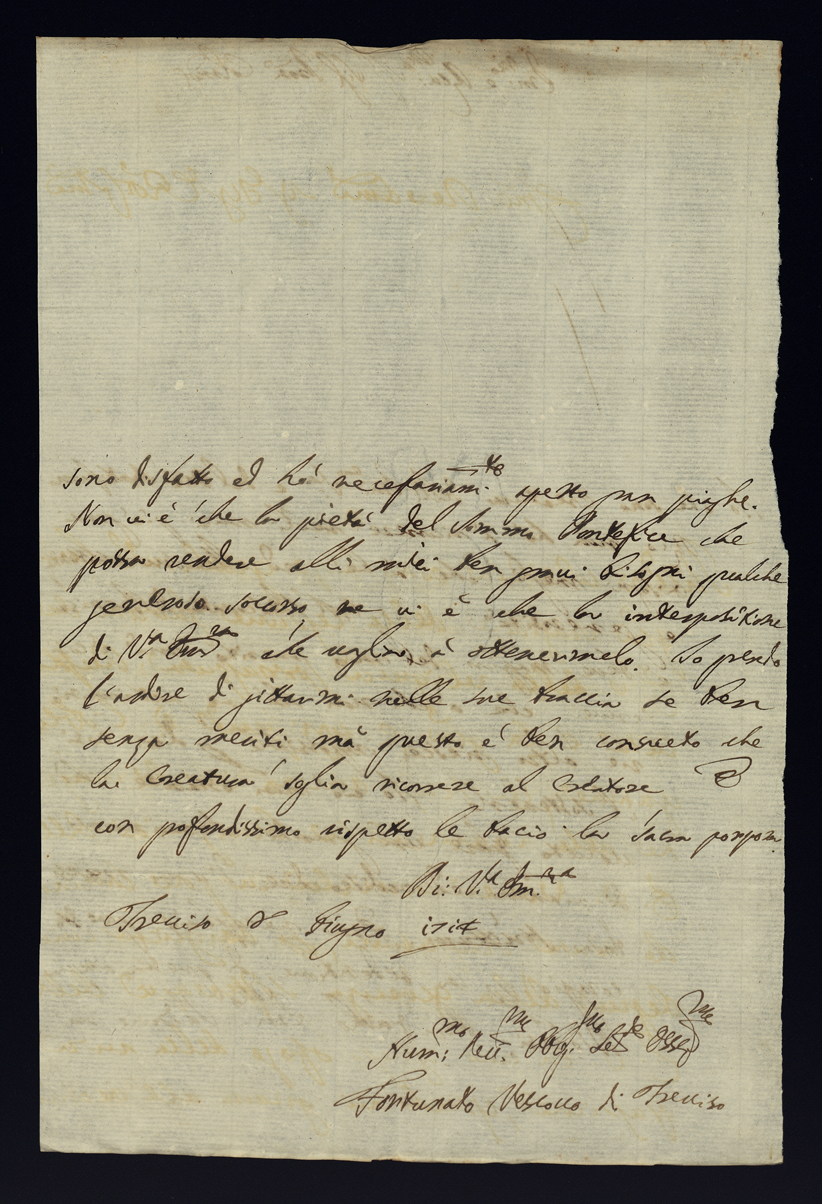 sono disfatto ed hò necessariam.te aperto gran piaghe.
Non vi è che la pietà del Sommo Pontefice che
possa rendere alli miei ben gravi bisogni qualche
generoso socorso ne vi è che la interpositione
di V.ra Em.za che voglia à ottenermelo. Io prendo
l'ardire di gittarmi nelle sue braccia se ben
senza meriti mà questo è ben consueto che
la Creatura soglia ricorrere al Creatore E
con profondissimo rispetto le bacio la sacra porpora
Di: V.ra Em.za
Treviso Giugno 1714
Hum:mo Rev.me Obg.mo Ser.te Osseq.mo
Fortunato Vescovo di Treviso